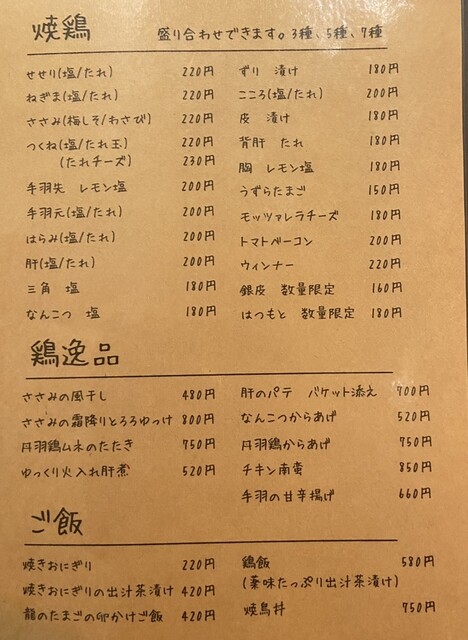 焼鶏　盛り合わせできます。3種、5種、7種
せせり(塩/たれ)　220円
ねぎま(塩/たれ)　220円
ささみ(梅しそ/わさび)　220円
つくね(塩/たれ玉)　220円
(たれチーズ)　230円
手羽先　レモン塩　200円
手羽元(塩/たれ)　200円
はらみ(塩/たれ)　200円
肝(塩/たれ)　200円
三角　塩　180円
なんこつ　塩　180円
ずり　漬け　180円
こころ(塩/たれ)　200円
皮　漬け　180円
背肝　たれ　180円
胸　レモン塩　180円
うずらたまご　150円
モッツァレラチーズ　180円
トマトベーコン　200円
ウィンナー　220円
銀皮　数量限定　160円
はつもと　数量限定　180円
鶏逸品
ささみの風干し　480円
ささみの霜降りとろろゆっけ　800円
丹羽鶏ムネのたたき　750円
ゆっくり火入れ肝煮　520円
肝のパテ　バケット添え　700円
なんこつからあげ　520円
丹羽鶏からあげ　750円
チキン南蛮　850円
手羽の甘辛揚げ　660円
ご飯
焼きおにぎり　220円
焼きおにぎりの出汁茶漬け　420円
龍のたまごの卵かけご飯　420円
鶏飯　580円
(薬味たっぷり出汁茶漬け)
焼鳥丼　750円